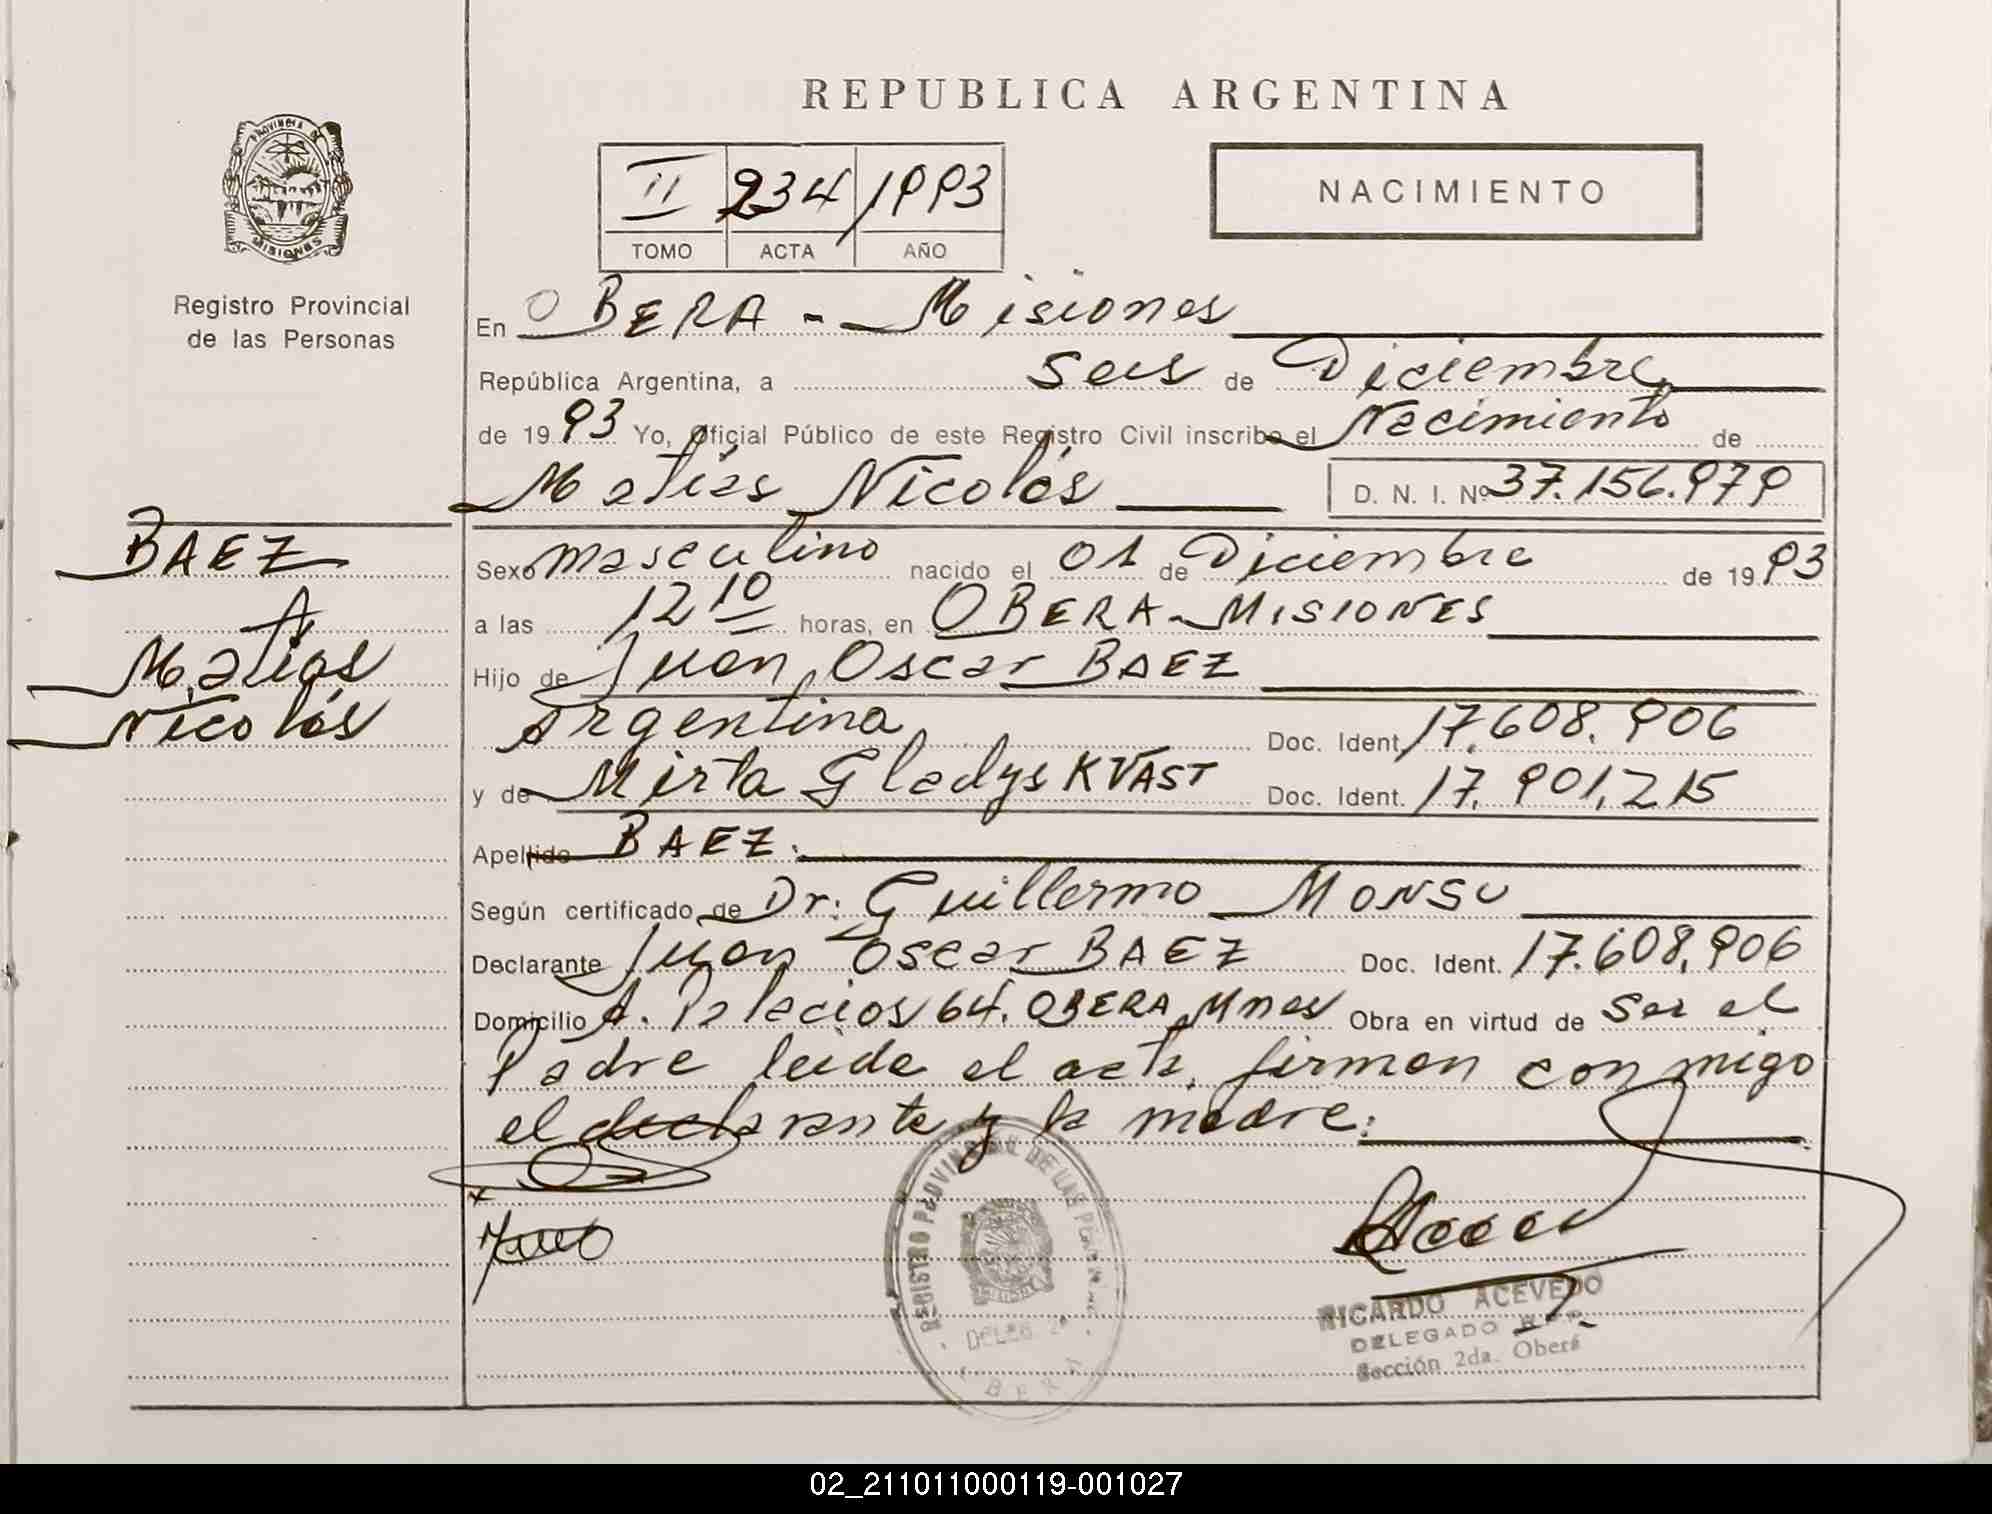 REPUBLICA ARGENTINA
PROVINCIA DE
MISIONES
Registro Provincial
de las Personas
II 234 1993
TOMO ACTA AÑO
NACIMIENTO
En OBERA - Misiones
República Argentina, a Seis de Diciembre
de 1993 Yo, Oficial Público de este Registro Civil inscribo el Nacimiento de
Matías Nicolás D. N. I. Nº 37.156.979
BAEZ
Matías
Nicolás
Sexo masculino nacido el 01 de Diciembre de 1993
a las 12 10 horas, en OBERA - MISIONES
Hijo de Juan Oscar BAEZ
Argentina Doc. Ident. 17.608.906
y de Mirta Gladys KVAST Doc. Ident. 17.901.215
Apellido BAEZ.
Según certificado de Dr: Guillermo MONSU
Declarante Juan Oscar BAEZ Doc. Ident. 17.608.906
Domicilio A. Palacios 64. OBERA Mnes Obra en virtud de ser el
Padre leida el acta, firman conmigo
el declarante y la madre:
REGISTRO PROVINCIAL DE LAS PERSONAS
DELEG. 2ª
OBERA
RICARDO ACEVEDO
DELEGADO R.P.P.
Sección 2da. Oberá
02_211011000119-001027